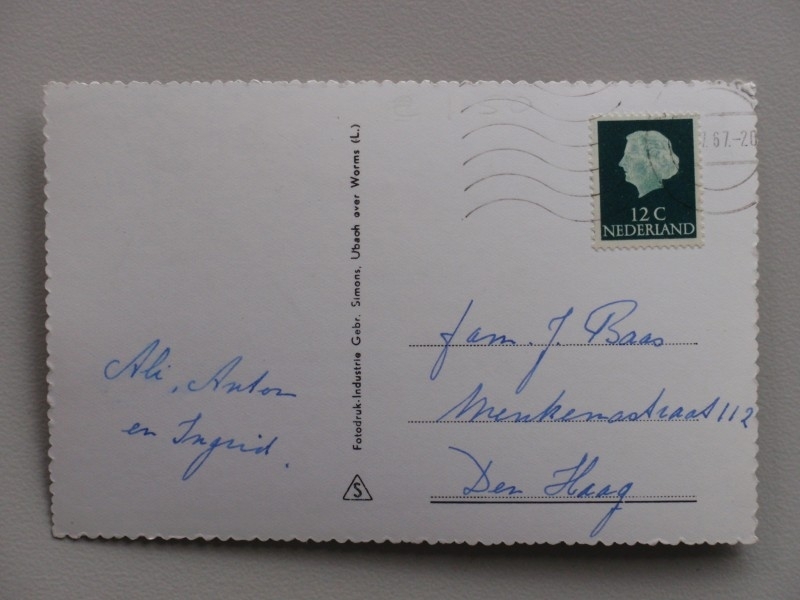 Ali, Anton
en Ingrid.
Fotodruk-Industrie Gebr. Simons, Ubach over Worms (L.)
S
67.-20
12 C
NEDERLAND
Fam. J. Baas
Menkemastraat 112
Den Haag